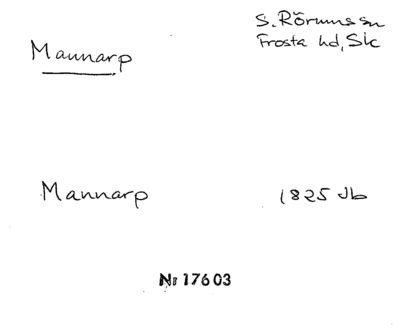 S. Rörums sn
Mannarp
Frosta hd, Sk
Mannarp
1825 Jb
Nr 17603